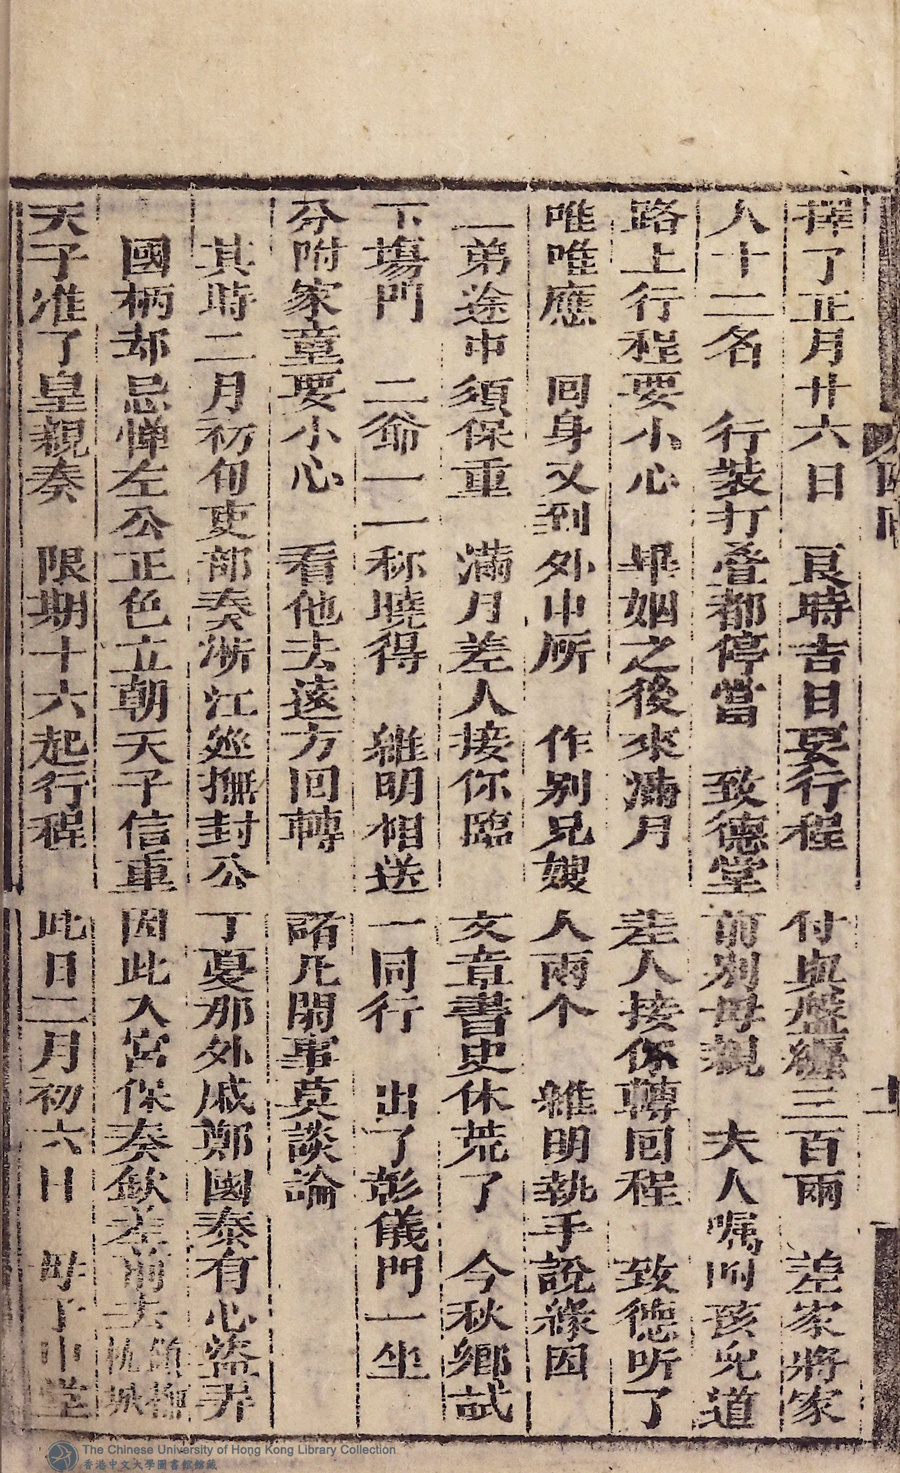 擇了正月廿六日　良時吉日要行程　付與盤纏三百兩　差家將家
人十二名　行裝打叠都停當　致德堂前別母親　夫人嘱咐孩兒道
路上行程要小心　畢姻之後來滿月　差人接你轉回程　致德听了
唯唯應　回身又到外中所　作別兄嫂人兩个　維明執手說緣因
一弟途中須保重　滿月差人接你臨　文章書史休荒了　今秋鄉試
下塲門　二爺一一称曉得　維明相送一同行　出了彭儀門一坐
分附家童要小心　看他去遠方回轉　諸凡閑事莫談論
其時二月初旬吏部奏淅江廵撫封公丁憂那外戚鄭國泰有心盜弄
國柄却忌惮左公正色立朝天子信重因此入宮保奏欽差前去鎮撫杭城
天子准了皇親奏　限期十六起行程　此日二月初六日　母子中堂
The Chinese University of Hong Kong Library Collection
香港中文大學圖書館館藏